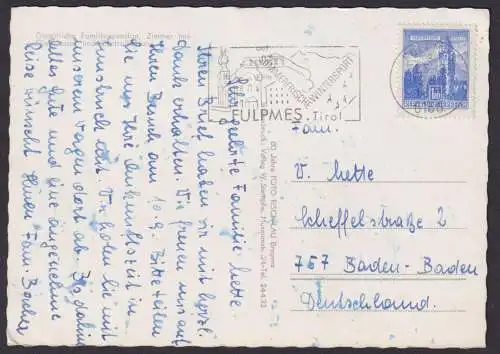 Gemütliche Familienpension, Zimmer
Sehr geehrte Familie Mette.
Ihren Brief haben wir mit herzl.
Dank erhalten. Wir freuen uns auf
Ihren Besuch am 10.9. Bitte teilen
Sie uns Ihre Ankunftszeit in
Innsbruck mit. Wir holen Sie mit
unserem Wagen dort ab. Bis dahin
alles Gute und eine angenehme
Reise wünscht Ihnen Fam.
SOMMERFRISCHE WINTERSPORT
FULPMES Tirol
REPUBLIK ÖSTERREICH
Fam.
V. Mette
Scheffelstraße 2
757 Baden-Baden
Deutschland.